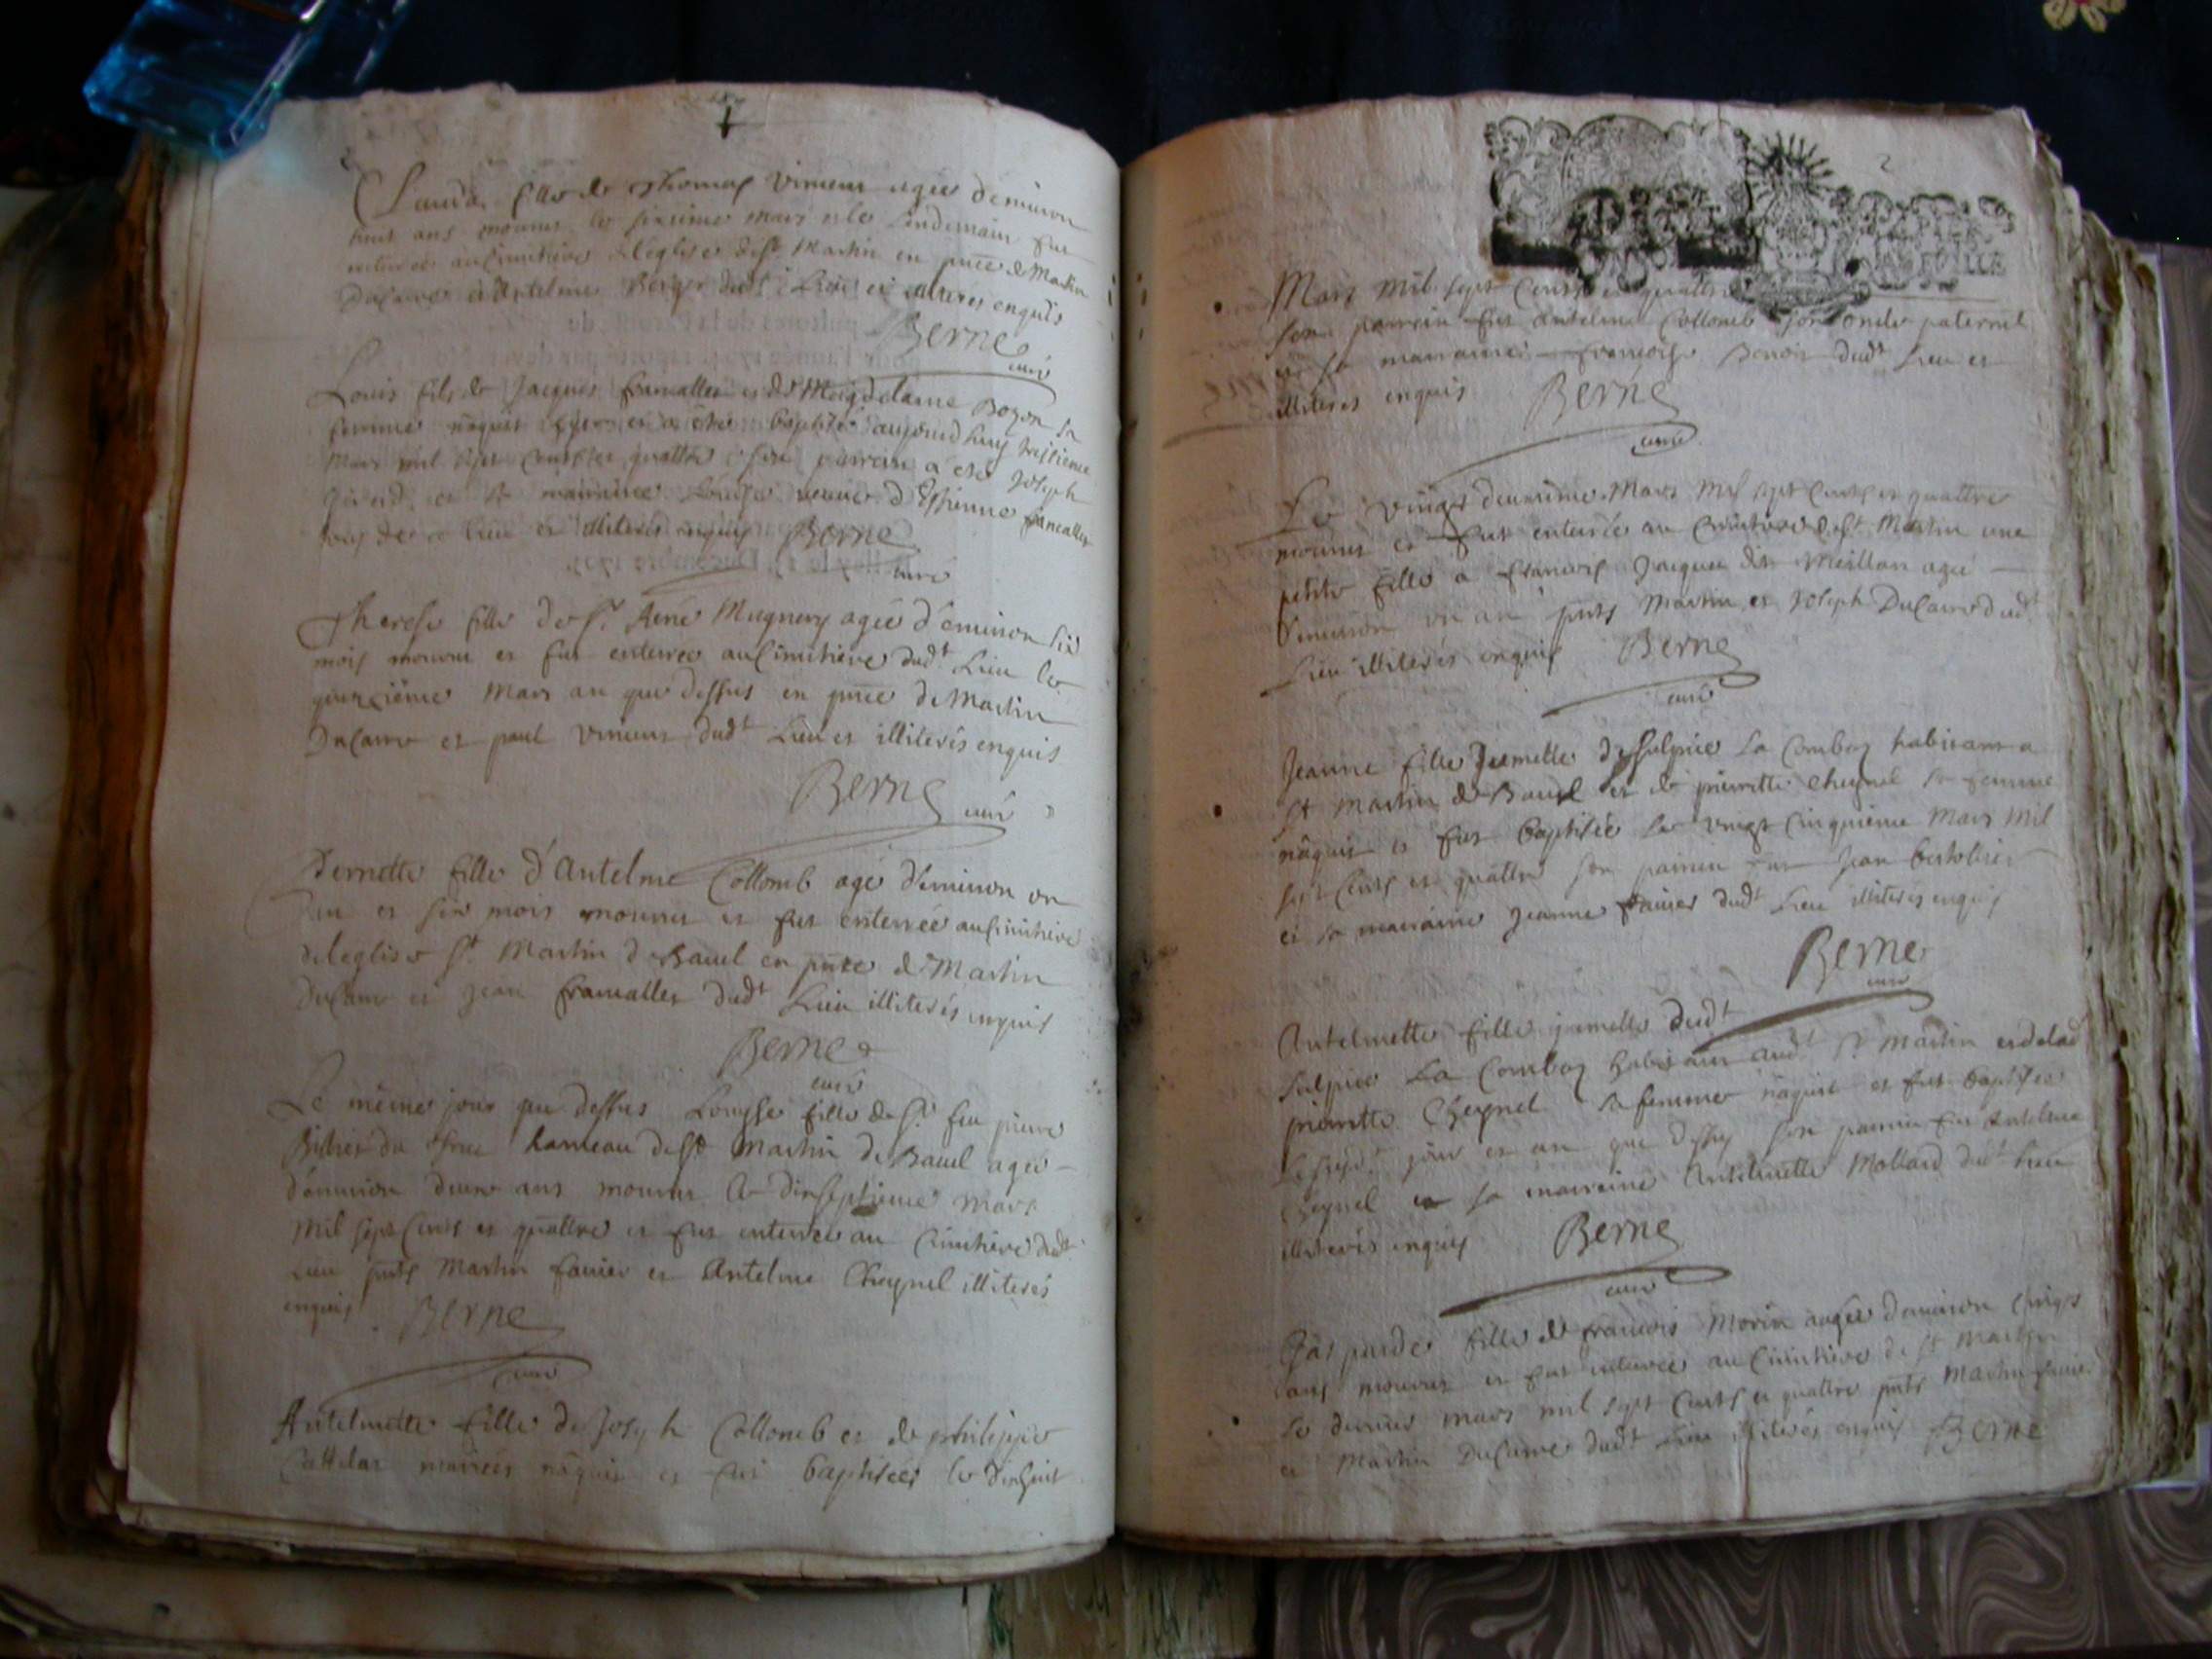 Clauda fille de Thomas Vimeux agée d'environ
huit ans mourut le sixieme mars et le lendemain fut
enterree au Cimitiere de l'eglise de St Martin en pnce de Martin
Ducarre et Antelme Berger dudt Lieu et illiteres enquis
Berne
curé
Louis fils de Jacques francallet et de Magdelaine Bozon sa
femme naquit hyer et a este baptisé aujourd huy
mars mil sept cents et quattre son parrain a esté Joseph
et sa marraine Louise veuve d'Estienne francallet
tous de ce lieu et illiterés enquis Berne
curé
Therese fille de Sr. René Mugnery agée d'environ six
mois mourut et fut enterrée au Cimitiere dudt Lieu le
quinzième Mars an que dessus en pnce de Martin
Ducarre et paul Vimeux dudt Lieu et illiterés enquis
Berne curé
Pernette fille d'Antelme Collomb agé d'environ un
an et six mois mourut et fut enterrée au Cimitiere
de leglise St Martin de Bavel en pnce de Martin
Ducarre et Jean francallet dudt Lieu illiterés enquis
Berne
curé
Le même jour que dessus Louyse fille de Sr. feu pierre
du hameau de St Martin de Bavel agée
d'environ deux ans mourut le dixseptieme mars
Mil sept Cents et quattre et fut enterrée au Cimitiere dudt
Lieu pnts Martin favier et Antelme Cheynel illiterés
enquis Berne
curé
Antelmette fille de Joseph Collomb et de philippe
Cattelar mariées naquit et fut baptisée le dixhuit
2
Mars mil sept Cents et quattre
son parrain fut Antelme Collomb son oncle paternel
et sa marraine francoise Benoit dudt Lieu et
illiteres enquis Berne
curé
Le vingt deuxieme Mars Mil sept Cents et quattre
mourut et fut enterrée au Cimitiere de St Martin une
petite fille a francois Jacquet dit Meillan agée
d'environ un an pnts Martin et Joseph Ducarre dudt
Lieu illiterés enquis Berne
curé
Jeanne fille Jumelle de Sulpice La Combaz habitant a
St Martin de Bavel et de pierrette Cheynel sa femme
naquit et fut baptisée le vingt Cinquieme Mars Mil
sept Cents et quattre son parrain fut Jean
et sa marraine Jeanne favier dudt Lieu illiterés enquis
Berne
curé
Antelmette fille jumelle dudt
Sulpice La Combaz habitant audt St Martin et de lad
pierrette Cheynel sa femme naquit et fut baptisée
jour et an que dessus son parrain fut Antelme
Cheynel et sa marraine Antelmette Mollard dudt Lieu
illiterés enquis Berne
curé
Gasparde fille de francois Morin aagée d'environ Cinq
ans mourut et fut enterrée au Cimitiere de St Martin
le dernier mars mil sept Cents et quattre pnts Martin favier
et Martin Ducarre dudt Lieu illiterés enquis Berne